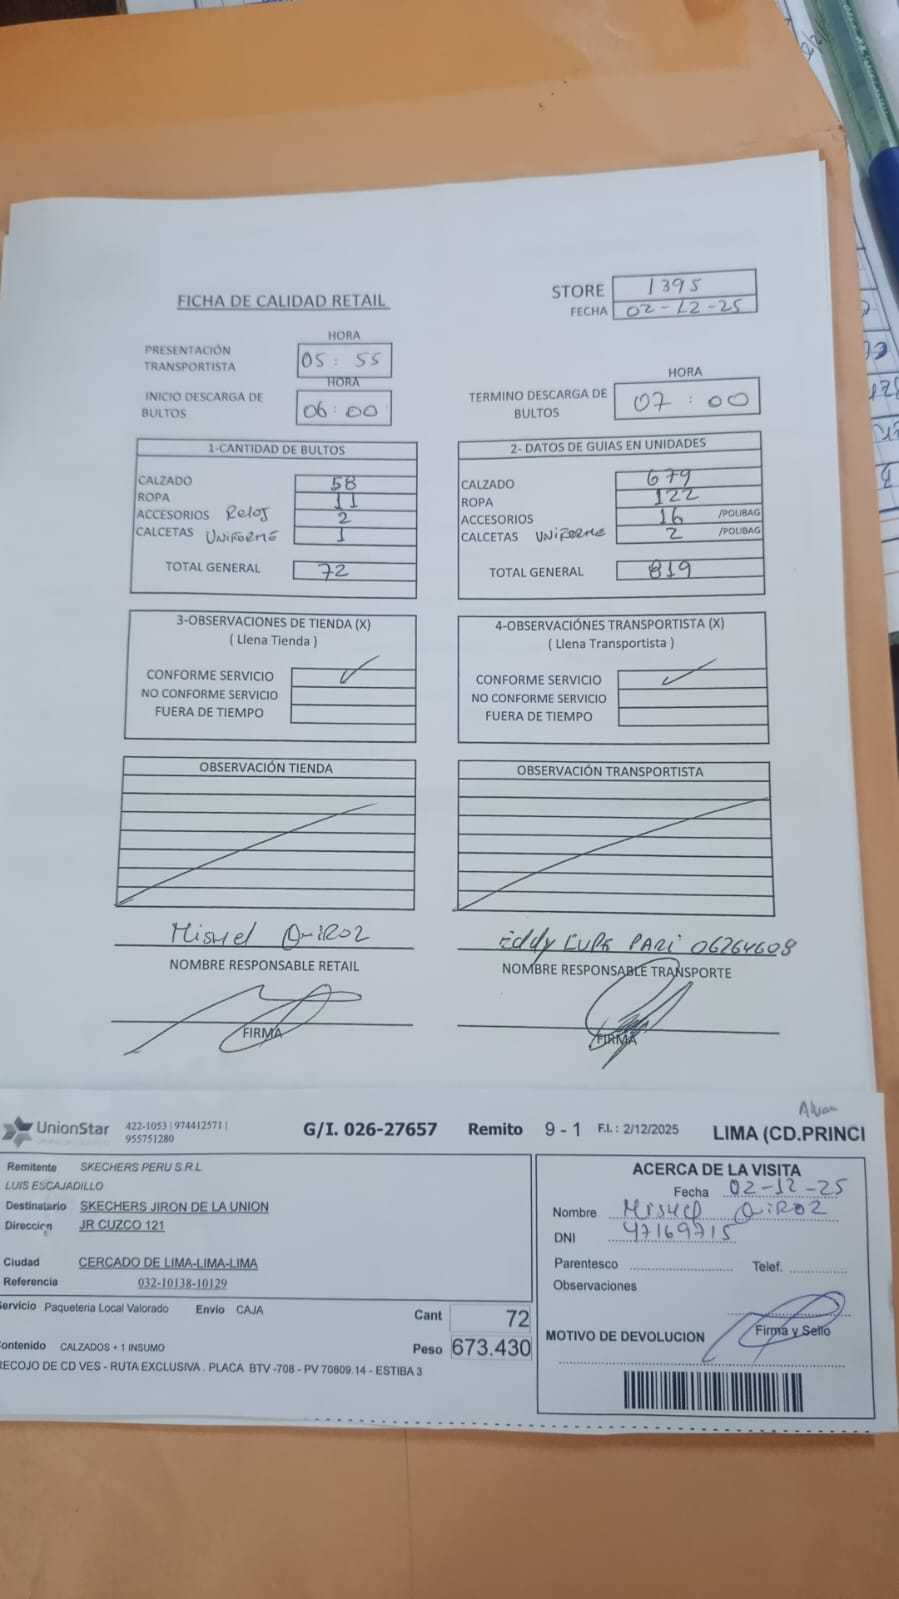 FICHA DE CALIDAD RETAIL
STORE 1395
FECHA 02-12-25
HORA
PRESENTACIÓN TRANSPORTISTA 05:55
HORA
INICIO DESCARGA DE BULTOS 06:00
HORA
TERMINO DESCARGA DE BULTOS 07:00
1-CANTIDAD DE BULTOS
CALZADO 58
ROPA 11
ACCESORIOS Reloj 2
CALCETAS UNIFORME 1
TOTAL GENERAL 72
2- DATOS DE GUIAS EN UNIDADES
CALZADO 679
ROPA 122
ACCESORIOS 16 /POLIBAG
CALCETAS UNIFORME 2 /POLIBAG
TOTAL GENERAL 819
3-OBSERVACIONES DE TIENDA (X)
( Llena Tienda )
CONFORME SERVICIO ✓
NO CONFORME SERVICIO
FUERA DE TIEMPO
4-OBSERVACIÓNES TRANSPORTISTA (X)
( Llena Transportista )
CONFORME SERVICIO ✓
NO CONFORME SERVICIO
FUERA DE TIEMPO
OBSERVACIÓN TIENDA
OBSERVACIÓN TRANSPORTISTA
Misuel QuiROZ
NOMBRE RESPONSABLE RETAIL
FIRMA
Eddy LUPE PARi 06264608
NOMBRE RESPONSABLE TRANSPORTE
FIRMA
UnionStar
422-1053 | 974412571 |
955751280
G/I. 026-27657 Remito 9 - 1 F.I.: 2/12/2025 LIMA (CD.PRINCI
Remitente SKECHERS PERU S.R.L
LUIS ESCAJADILLO
Destinatario SKECHERS JIRON DE LA UNION
Direccion JR CUZCO 121
Ciudad CERCADO DE LIMA-LIMA-LIMA
Referencia 032-10138-10129
Servicio Paqueteria Local Valorado Envio CAJA
Cant 72
Contenido CALZADOS + 1 INSUMO
Peso 673.430
RECOJO DE CD VES - RUTA EXCLUSIVA . PLACA BTV -708 - PV 70809.14 - ESTIBA 3
ACERCA DE LA VISITA
Fecha 02-12-25
Nombre Misuel QuiROZ
DNI 47169715
Parentesco Telef.
Observaciones
Firma y Sello
MOTIVO DE DEVOLUCION